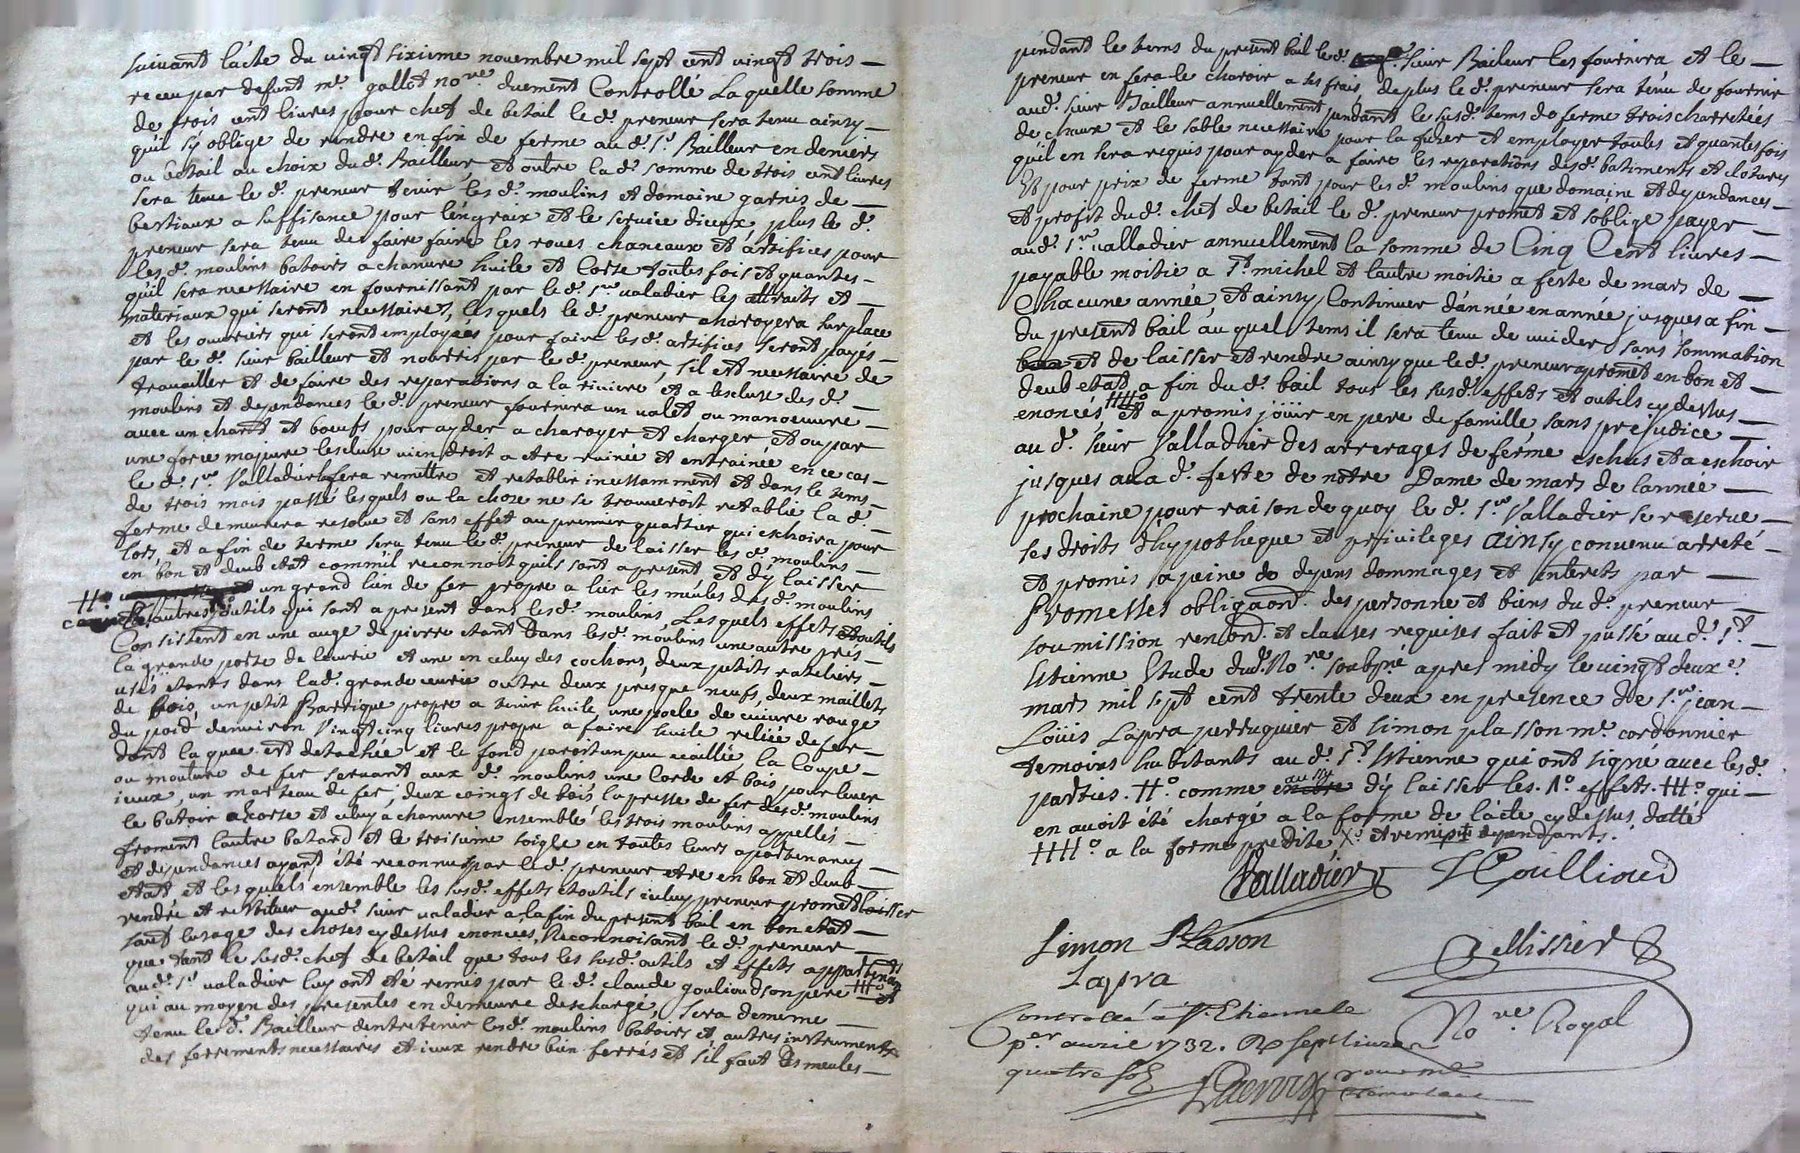 suivant lácte du vingt sixieme novembre mil sept cent vingt trois
receu par defunt mr. gallot nore. duement Controllé Laquelle somme
de trois cent livres pour chef de betail le d. preneur sera tenu ainsy
quil sÿ oblige de rendre en fin de ferme au d. sr. Bailleur en deniers
ou betail au choix du d. Bailleur, et outre la d. somme de trois cent livres
sera tenu le d. preneur tenir les d. moulins et domaine garnis de
bestiaux a suffisance pour léngraix et le service diceux plus le d.
preneur sera tenu de faire faire les roues chaneaux et artifices pour
les d. moulins batoirs a chanvre huile et Corse toutes fois et quantes
quil sera necessaire en fournissant par le d. sr. valadier les attraits et
materiaux qui seront necessaires, lesquels le d. preneur charoyera sur place
et les ouvriers qui seront employées pour faire les d. artifices seront payés
par le d. sieur bailleur et nourris par le d. preneur, sil est necessaire de
travailler et de faire des reparations a la riviere et a lescluse des d.
moulins et dependances le d. preneur fournira un valet ou manoeuvre
avec un chart et boeufs pour ayder a charoyer et charger et ou par
une force majeure lescluse viendroit a etre ruinée et entrainée en ce cas
le d. sr. Valladier fera remettre et retablir incessamment et dans le tems
de trois mois passé lesquels ou la chose ne se trouveroit retablie la d.
ferme demeurera resolue et sans effet au premier quartier qui eschoira pour
lors, et a fin de terme sera tenu le d. preneur de laisser les d. moulins
en bon et deub etat comme il reconnoit quils sont a present et dÿ laisser
H.o un grand lien de fer propre a lier les meules des d. moulins
et autres outils qui sont a present dans les d. moulins, Lesquels effets et outils
Consistent en une auge de pierre etant dans les d. moulins une autre prés
la grande porte de lécurie et une en celuy des cochons, deux petits rateliers
usés etants dans la d. grande ecurie outre deux presque neufs, deux maillets
de bois, un petit Barrique propre a tenir huile une poele de cuivre rouge
du poid denviron Vingt cinq livres propre a faire huile reliée de fer
dont la quee est detachée et le fond paroit un peu ecaillée, la Coupe
ou mouture de fer servant aux d. moulins une Corde et bois pour lever
iceux, un marteau de fer, deux coings de bois, la presse de fer des d. moulins
le batoir a Corse et celuy a chanvre ensemble les trois moulins appellés
froment lautre batard et le troisieme soigle en toutes leurs apartenances
et dependances ayant été reconnus par le d. preneur etre en bon et deub
etat et lesquels ensemble les susd. effets et outils iceluy preneur promet laisser
rendre et restituer au d. sieur valadier a la fin du present bail en bon etat
sauf lusage des choses cy dessus enoncées, Reconnoissant le d. preneur
que tant le susd. chef de betail que tous les susd. outils et effets appartenants
au d. sr. valadier luy ont été remis par le d. claude goulioud son pere HH.o et
qui au moyen des presentes en demeure deschargé, Sera de meme
tenu le d. Bailleur dentretenir les d. moulins batoirs et autres instruments
des ferrements necessaires et iceux rendre bien ferrés et sil faut des meules
pendant le tems du present bail le d. sieur Baileur les fournira et le
preneur en fera le charoir a ses frais, de plus le d. preneur sera tenu de fournir
au d. sieur Bailleur annuellement pendant le susd. tems de ferme trois charretées
de chaux et le sable necessaire pour la fuzer et employer toutes et quantes fois
quil en sera requis pour ayder a faire les reparations des d. batiments et clotures
Et pour prix de ferme tant pour les d. moulins que domaine et dependances
et profit du d. chef de betail le d. preneur promet et soblige payer
au d. sr. valladier annuellement la somme de Cinq Cent livres
payable moitie a St. michel et lautre moitie a feste de mars de
Chacune année et ainsy Continuer dánnée en année jusques a fin
du present bail au quel tems il sera tenu de vuider sans sommation
et de laisser et rendre ainsy que le d. preneur promet en bon et
deub etat a fin du d. bail tous les susd. effets et outils cy dessus
enoncés HHH.o et a promis jöüir en pere de famille sans prejudice
au d. sieur Valladier des arrerages de ferme eschus et a eschoir
jusques a la d. feste de nôtre Dame de mars de lannée
prochaine pour raison de quoy le d. sr. Valladier se reserve
ses droits dhypotheque et privileges ainsy convenu arreté
et promis a peine de depens dommages et interets par
Promesses obligaon. des personne et biens du d. preneur
soumission renon. et clauses requises fait et passé au d. St.
Etienne Etude du d. Nore. soubné. apres midy le vingt deuxe.
mars mil sept cent trente deux en presence de sr. jean
Loüis Lapra perruquier et simon plasson mr. cordonnier
temoins habitants au d. St. Etienne qui ont signé avec les d.
parties. H.o comme aussy dÿ laisser les. A.o effets. HH.o qui
en avoit été chargé a la forme de lácte cy dessus datté
HHH.o a la forme predite X.o et remis dependants.
Valladier
Goullioud
Simon Plasson
Pellissier
Lapra
Nore. Royal
Controllé a St. Etienne le
per. avril 1732. R sept livres
quatre sols
pour mr.